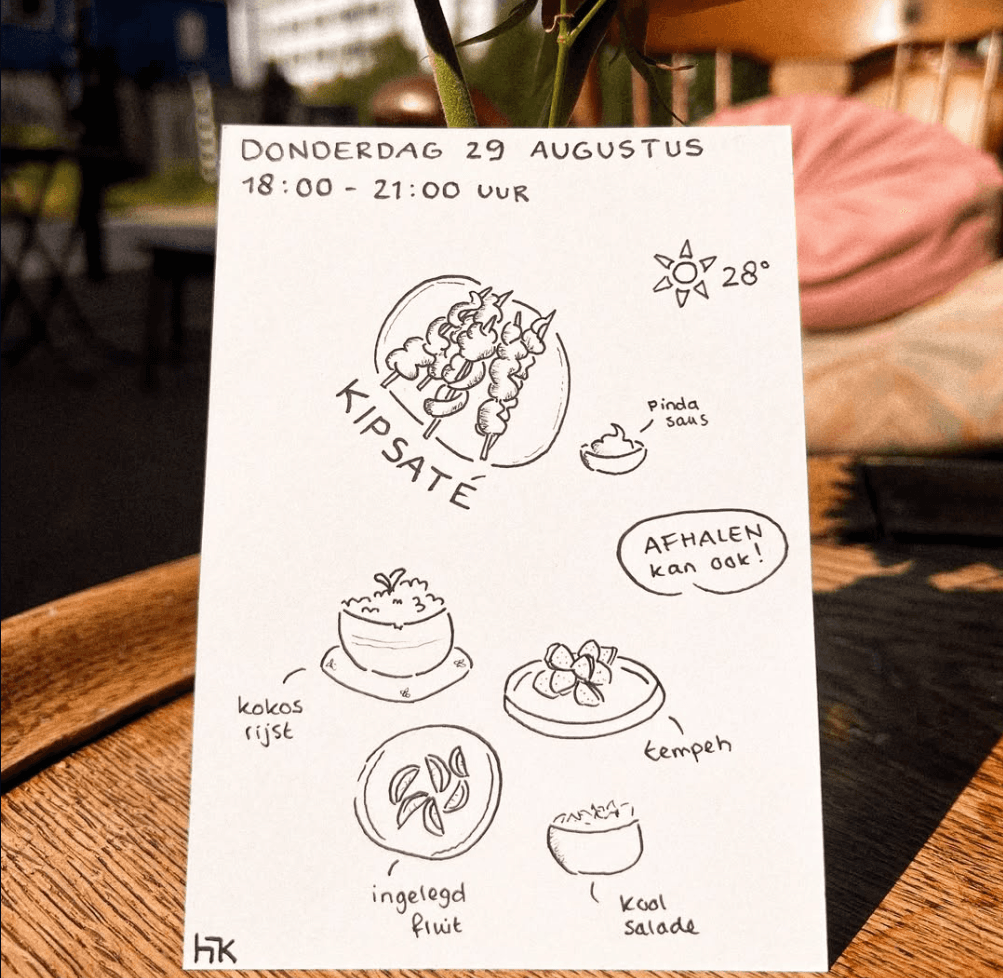 DONDERDAG 29 AUGUSTUS
18:00 - 21:00 UUR
28°
KIPSATÉ
pinda
saus
AFHALEN
kan ook!
kokos
rijst
tempeh
ingelegd
fruit
kool
salade
HK